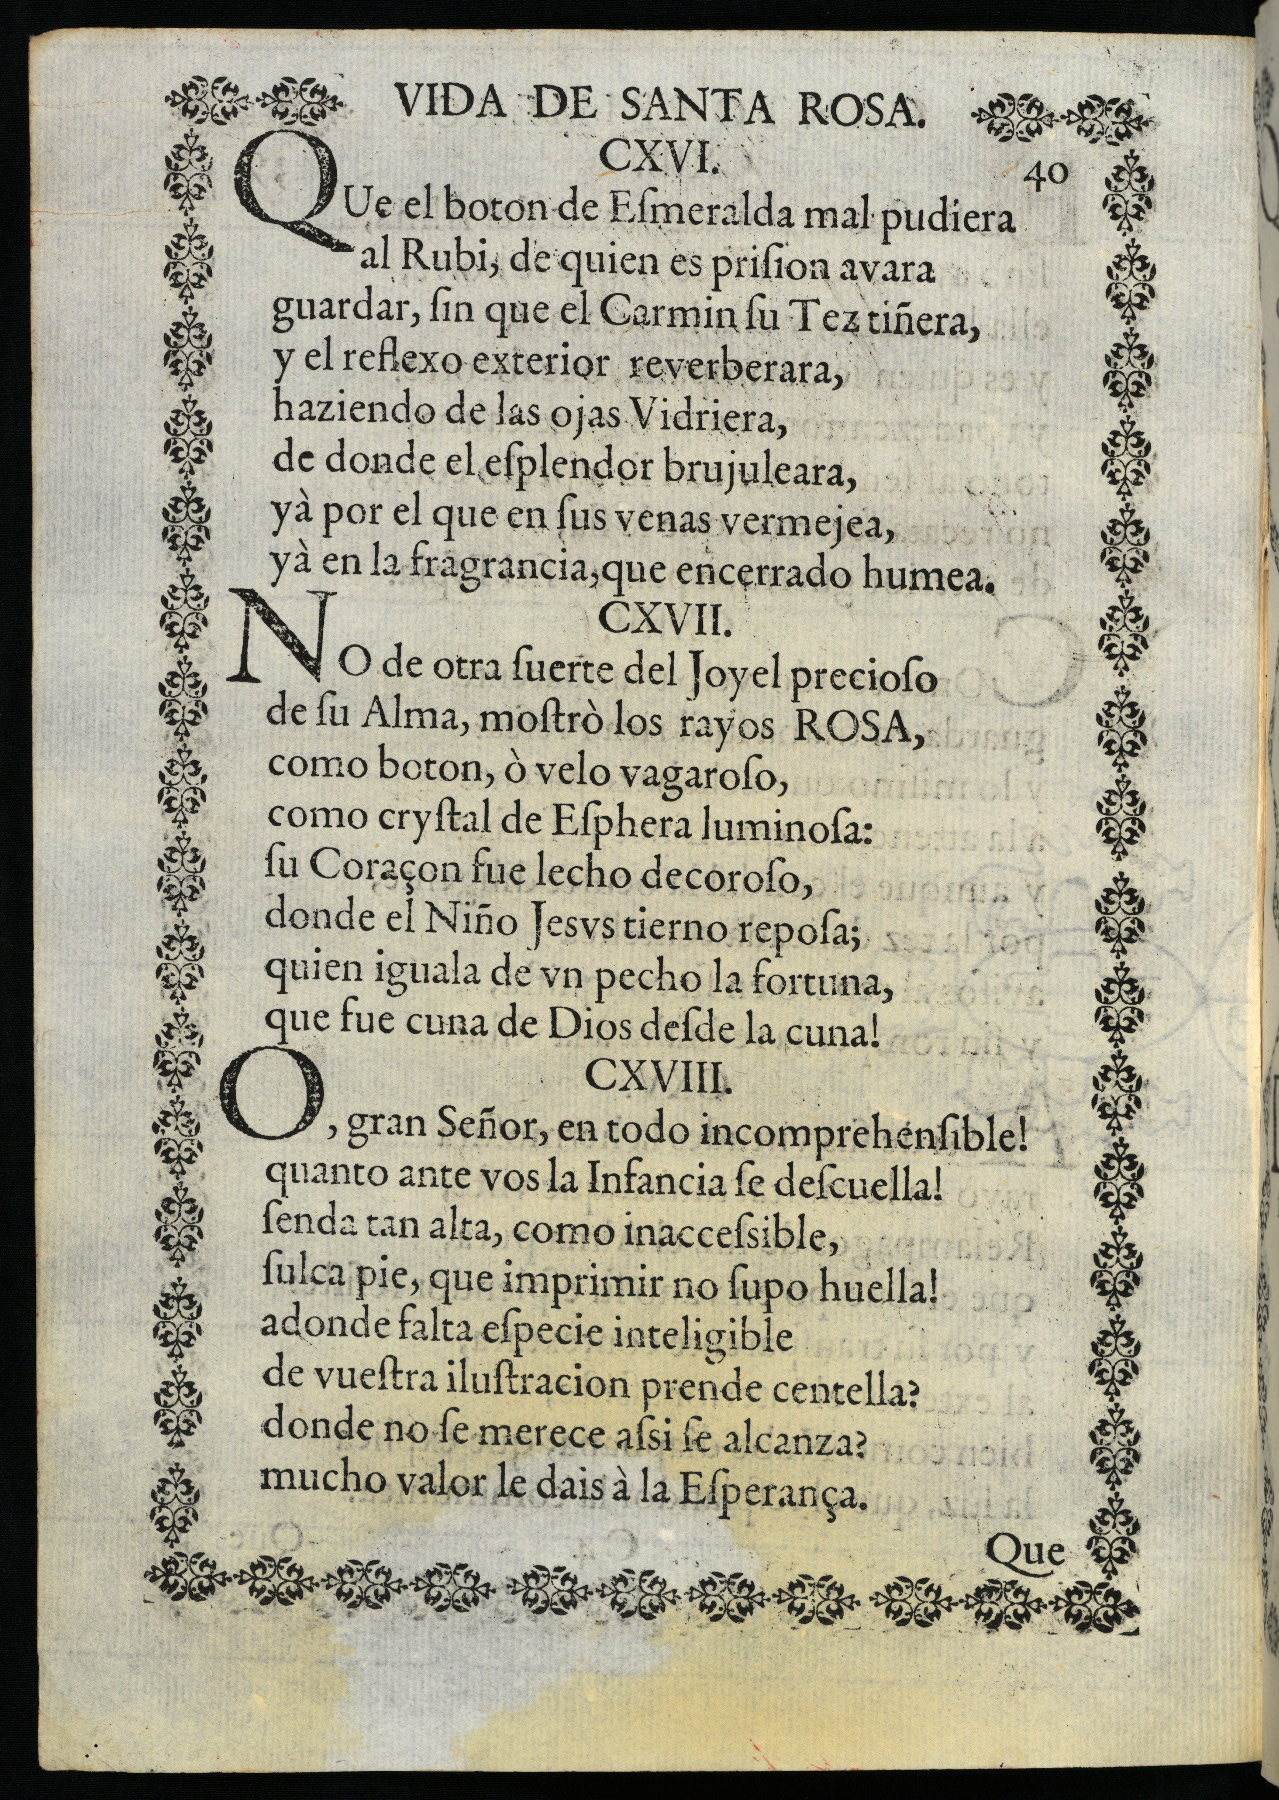 VIDA DE SANTA ROSA.
CXVI.
40
QUe el boton de Eſmeralda mal pudiera
al Rubi, de quien es priſion avara
guardar, ſin que el Carmin ſu Tez tiñera,
y el reflexo exterior reverberara,
haziendo de las ojas Vidriera,
de donde el eſplendor brujuleara,
yà por el que en ſus venas vermejea,
yà en la fragrancia, que encerrado humea.
CXVII.
NO de otra ſuerte del Joyel precioſo
de ſu Alma, moſtrò los rayos ROSA,
como boton, ò velo vagaroſo,
como cryſtal de Eſphera luminoſa:
ſu Coraçon fue lecho decoroſo,
donde el Niño Jesvs tierno repoſa;
quien iguala de vn pecho la fortuna,
que fue cuna de Dios deſde la cuna!
CXVIII.
O, gran Señor, en todo incomprehenſible!
quanto ante vos la Infancia ſe deſcuella!
ſenda tan alta, como inacceſsible,
ſulca pie, que imprimir no ſupo huella!
adonde falta eſpecie inteligible
de vueſtra iluſtracion prende centella?
donde no ſe merece aſsi ſe alcanza?
mucho valor le dais à la Eſperança.
Que